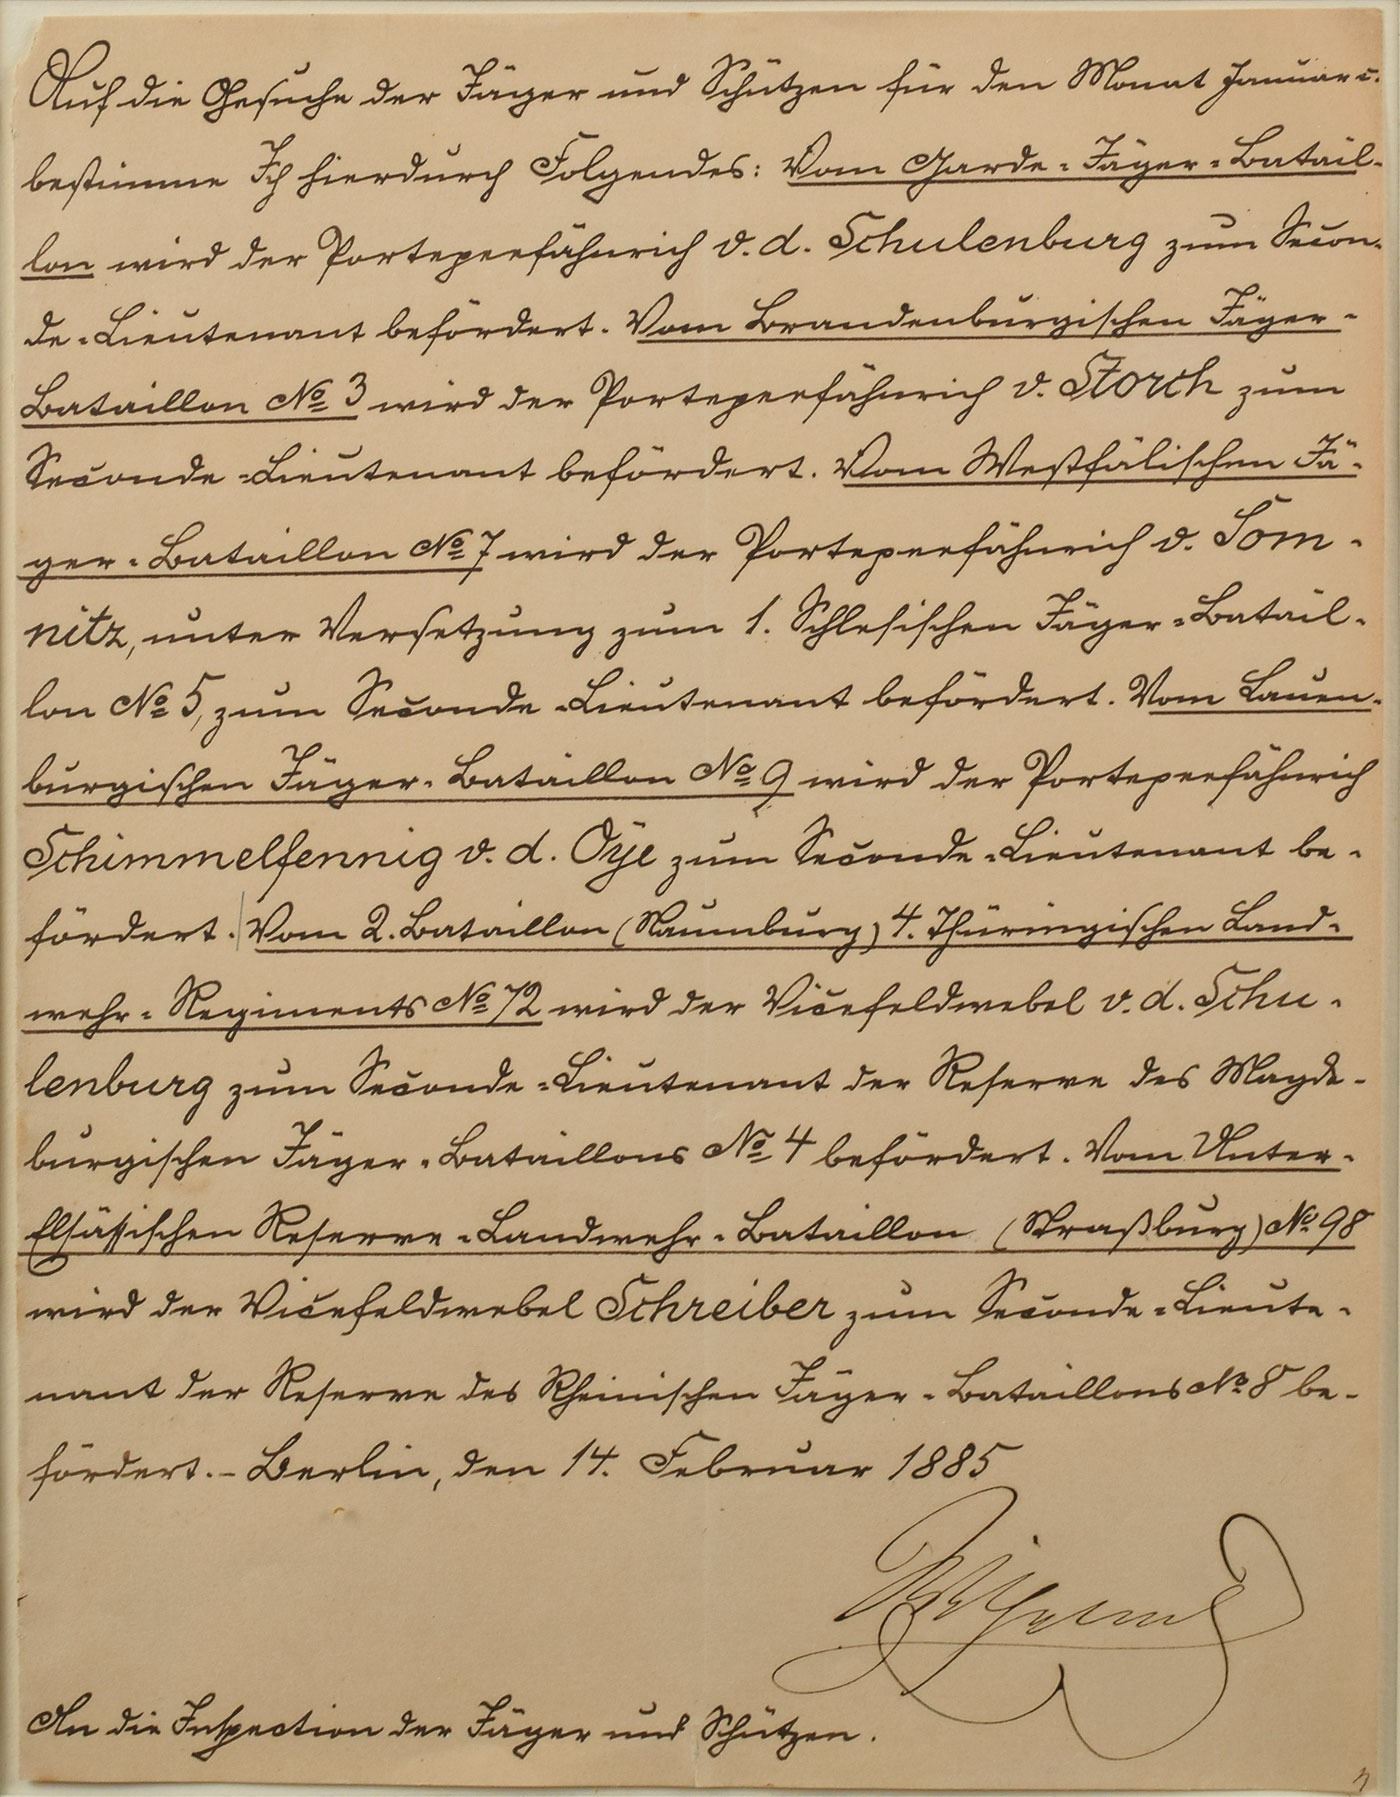 Auf die Gesuche der Jäger und Schützen für den Monat Januar c.
bestimme Ich hierdurch Folgendes: Vom Garde-Jäger-Batail-
lon wird der Portepeefähnrich v. d. Schulenburg zum Secon-
de-Lieutenant befördert. Vom Brandenburgischen Jäger-
Bataillon No 3 wird der Portepeefähnrich v. Storch zum
Seconde-Lieutenant befördert. Vom Westfälischen Jä-
ger-Bataillon No 7 wird der Portepeefähnrich v. Som-
nitz, unter Versetzung zum 1. Schlesischen Jäger-Batail-
lon No 5, zum Seconde-Lieutenant befördert. Vom Lauen-
burgischen Jäger-Bataillon No 9 wird der Portepeefähnrich
Schimmelfennig v. d. Oÿe zum Seconde-Lieutenant be-
fördert. Vom 2. Bataillon (Naumburg) 4. Thüringischen Land-
wehr-Regiments No 72 wird der Vicefeldwebel v. d. Schu-
lenburg zum Seconde-Lieutenant der Reserve des Magde-
burgischen Jäger-Bataillons No 4 befördert. Vom Unter-
Elsässischen Reserve-Landwehr-Bataillon (Straßburg) No 98
wird der Vicefeldwebel Schreiber zum Seconde-Lieute-
nant der Reserve des Rheinischen Jäger-Bataillons No 8 be-
fördert. - Berlin, den 14. Februar 1885
Wilhelm
An die Inspection der Jäger und Schützen.